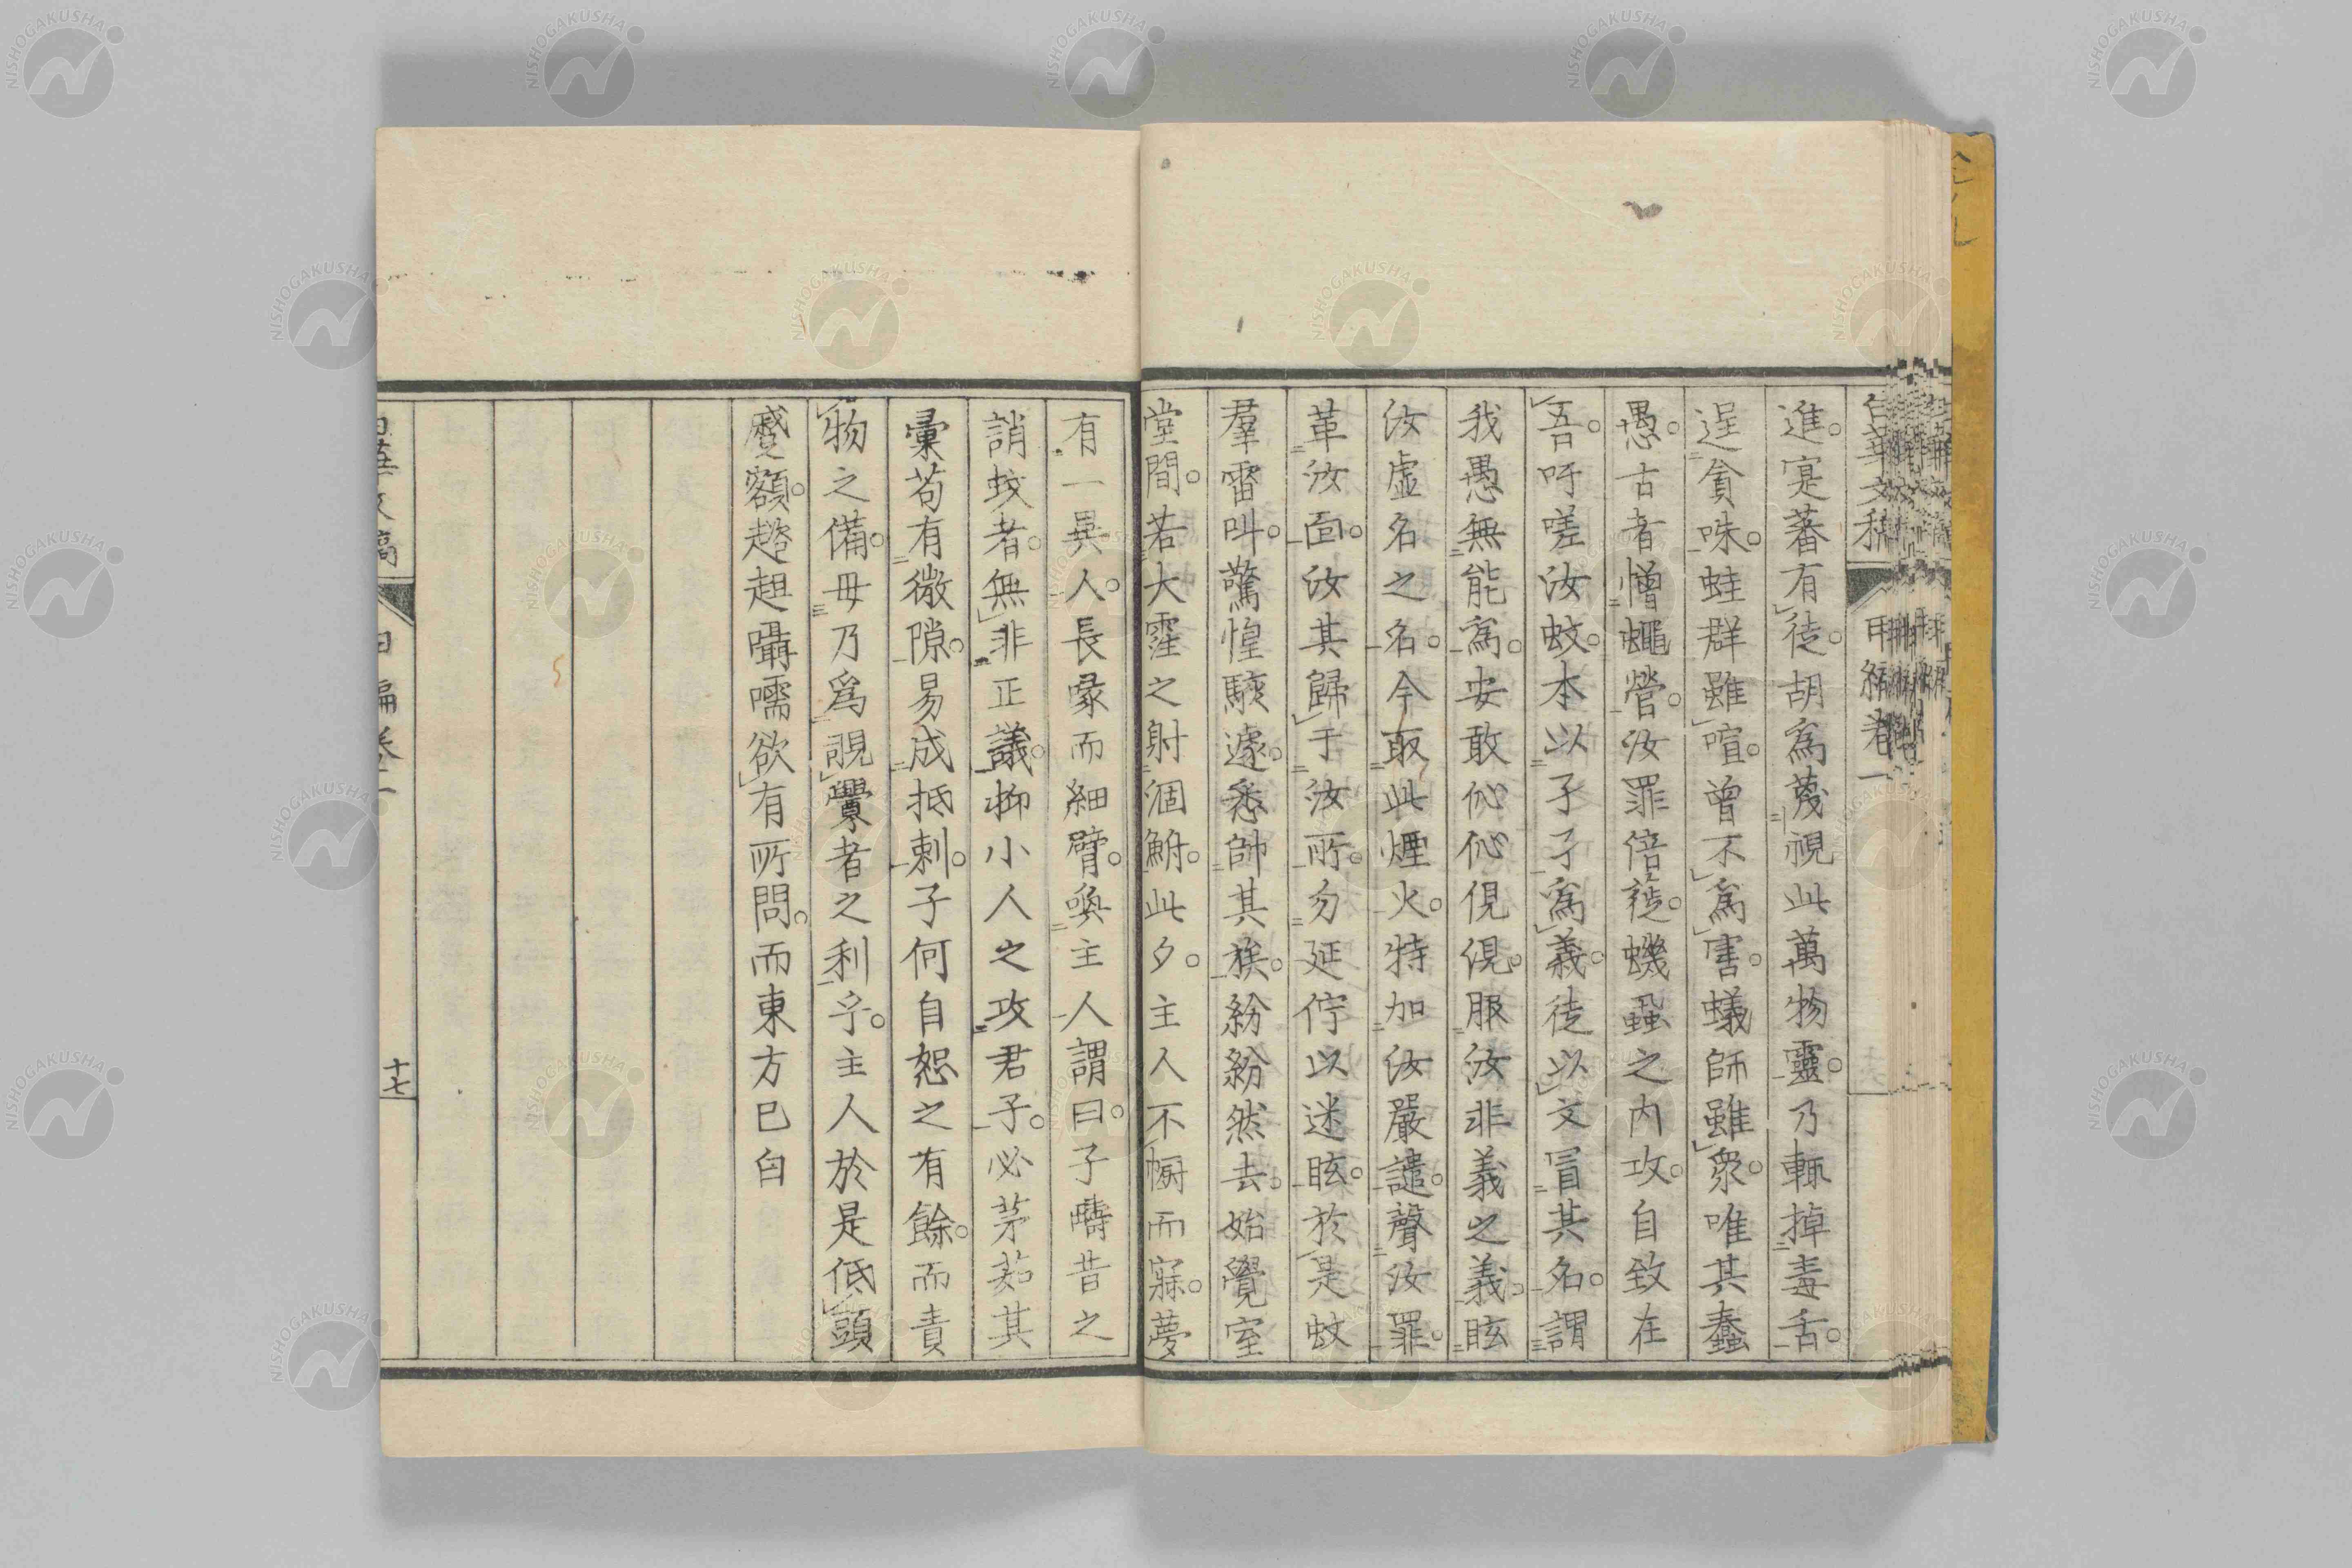 進。寔蕃有徒。胡爲蔑視此萬物靈。乃輒掉毒舌。
逞貪咮。蛙群雖喧。曾不爲害。蟻師雖衆。唯其蠢
愚。古者憎蠅營。汝罪倍蓰。蟣蝨之内攻。自致在
吾。吁嗟汝蚊。本以孑孑爲義。徒以文冒其名。謂
我愚無能爲。安敢伈伈俔俔。服汝非義之義。眩
汝虛名之名。今取此煙火。特加汝嚴譴。聲汝罪。
革汝面。汝其歸于汝所。勿延佇以迷眩。於是蚊
羣雷叫。驚惶駭遽。悉帥其族。紛紛然去。始覺室
堂間。若大霪之射涸鮒。此夕。主人不㡡而寐。夢
有一異人。長喙而細臂。喚主人謂曰。子疇昔之
誚蚊者。無非正議。抑小人之攻君子。必茅茹其
彙。苟有微隙。易成抵刺。子何自恕之有餘。而責
物之備。毋乃爲覘釁者之利乎。主人於是低頭
蹙額。趦趄囁嚅。欲有所問。而東方已白
白華文稿
日編卷一
十七